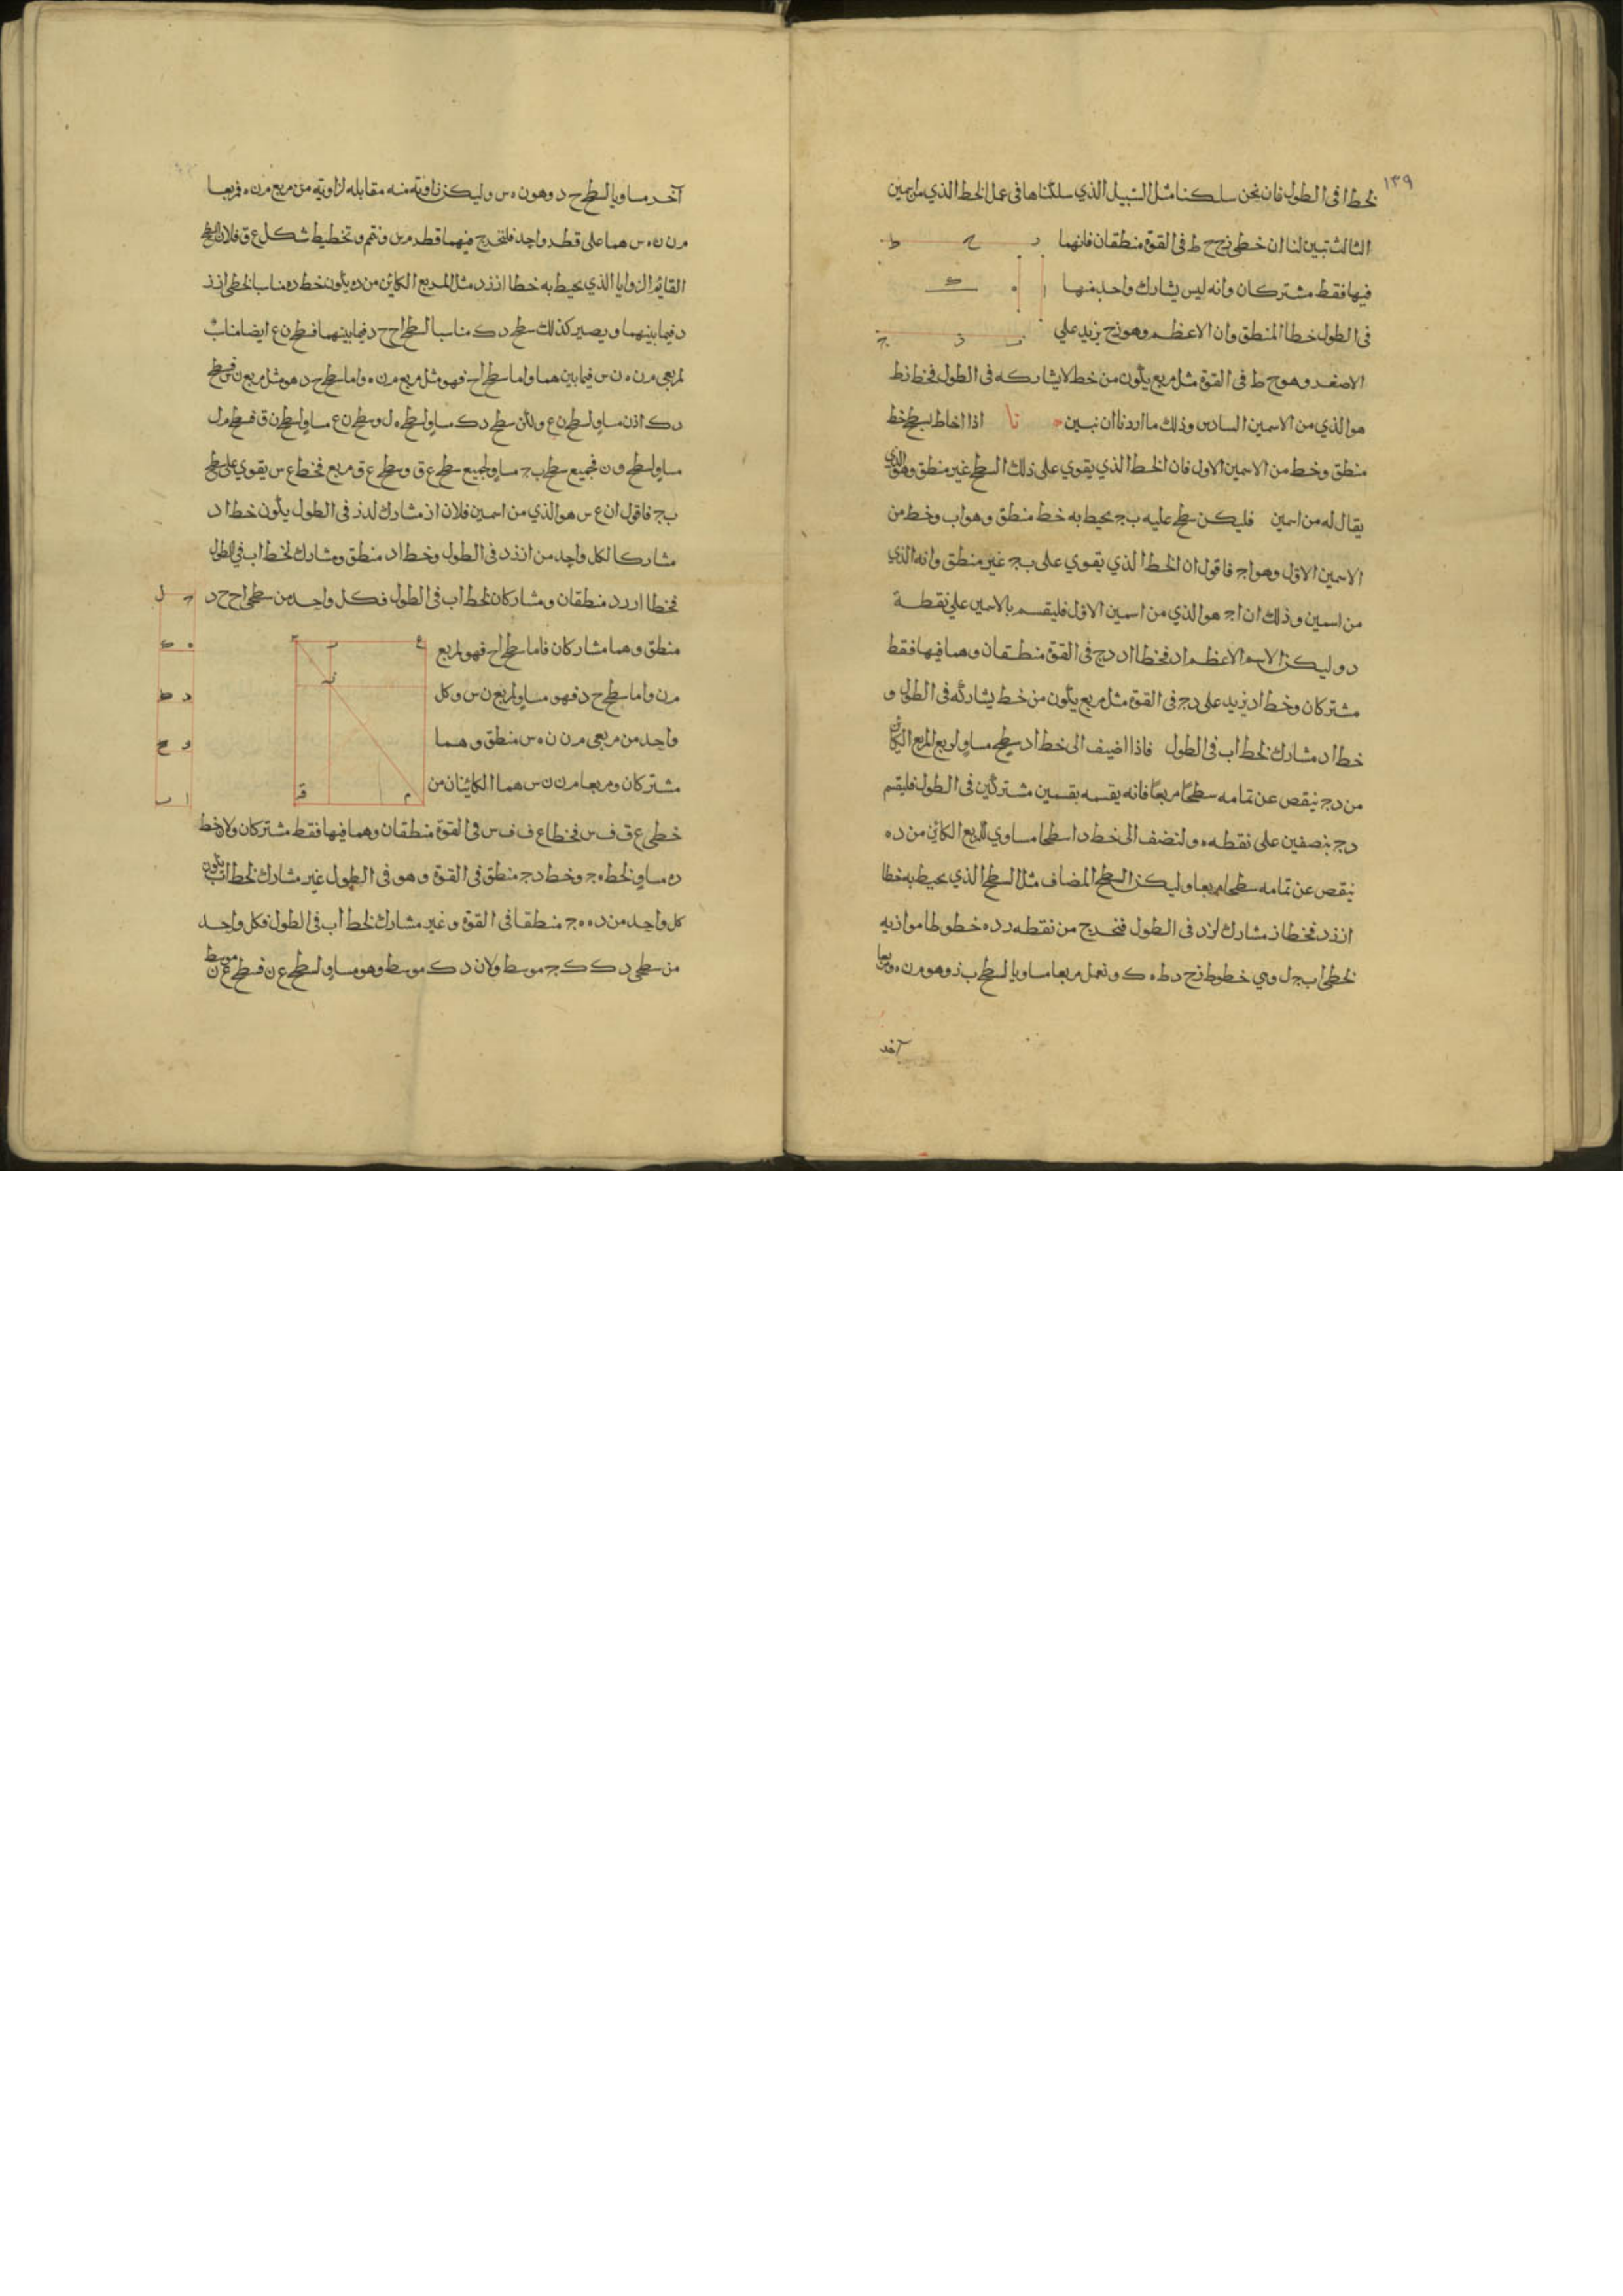 ١٣٩
لخط ا فى الطول فان نحن سلكنا مثل السبيل الذي سلكناها فى عمل الخط الذي من اسمين
الثالث تبين لنا ان خطي زح ح ط فى القوة منطقان فانهما
فيها فقط مشتركان وانه ليس يشارك واحد منهما
فى الطول خط ا المنطق وان الاعظم وهو زح يزيد على
الاصغر وهو ح ط فى القوة مثل مربع يكون من خط لا يشاركه فى الطول فخط زط
هو الذي من الاسمين السادس وذلك ما اردنا ان نبين نا اذا احاط بسطح خط
منطق وخط من الاسمين الاول فان الخط الذي يقوي على ذلك السطح غير منطق وهو الذي
يقال له من اسمين فليكن سطح عليه ب ج يحيط به خط منطق وهو اب وخط من
الاسمين الاول وهو اج فاقول ان الخط الذي يقوي على ب ج غير منطق وانه الذي
من اسمين وذلك ان اج هو الذي من اسمين الاول فليقسم بالاسمين على نقطة
د وليكن الاسم الاعظم اد فخطا اد دج فى القوة منطقان وهما فيها فقط
مشتركان وخط اد يزيد على دج فى القوة مثل مربع يكون من خط يشاركه فى الطول و
خط اد مشارك لخط اب فى الطول فاذا اضيف الى خط اد سطح مساو لربع المربع الكائن
من دج ينقص عن تمامه سطحا مربعا فانه يقسمه بقسمين مشتركين فى الطول فليقسم
دج بنصفين على نقطه ه ولنضف الى خط دا سطحا مساوي للمربع الكائن من ده
ينقص عن تمامه سطحا مربعا وليكن السطح المضاف مثل السطح الذي يحيط به خطا
از زد فخط از مشارك لزد فى الطول فنخرج من نقطه ز د ه خطوطا موازيه
لخطي اب ج ل وهي خطوط زح دط ه ك ونعمل مربعا مساويا لسطح ب ز وهو م ن ه ومربعا
آخر
آخر مساويا لسطح ح د وهو ن ه س وليكن زاويته منه مقابله لزاوية من مربع م ن ه فمربعا
م ن ن ه س هما على قطر واحد فلنخرج فيهما قطر م س ونتمم وتخطيط شكل ع ق فلان السطح
القائم الزوايا الذي يحيط به خطا از زد مثل المربع الكائن من ده يكون خط ده مناسبا لخطي از ز
د فيما بينهما ويصير كذلك سطح د ك مناسبا لسطح اح ح د فيما بينهما فسطح ن ع ايضا مناسب
لمربعي م ن ه ن س فيما بين هما واما سطح اح فهو مثل مربع م ن ه واما سطح ح د هو مثل مربع ن س فسطح
د ك اذن مساو لسطح ن ع ولكن سطح د ك مساو لسطح ه ل وسطح ن ع مساو لسطح ن ق فسطح ه ل
مساو لسطح ف ن فجميع سطح ب ج مساو لجميع سطح ع ق وسطح ع ق مربع فخط ع س يقوي على سطح
ب ج فاقول ان ع س هو الذي من اسمين فلان از مشارك لدز فى الطول يكون خط اد
مشاركا لكل واحد من از زد فى الطول وخط اد منطق ومشارك لخط اب فى الطول
فخطا از زد منطقان ومشاركان لخط اب فى الطول فكل واحد من سطحي اح ح د
منطق وهما مشاركان فاما سطح اح فهو لمربع
م ن واما سطح ح د فهو مساو لمربع ن س وكل
واحد من مربعي م ن ن ه س منطق وهما
مشتركان ومربعا م ن ن س هما الكائنان من
خطي ع ق ف س فخطا ع ف ف س فى القوة منطقان وهما فيها فقط مشتركان ولان خط
ده مساو لخط ه ج وخط دج منطق فى القوة وهو فى الطول غير مشارك لخط اب يكون
كل واحد من ده ه ج منطقا فى القوة وغير مشارك لخط اب فى الطول فكل واحد
من سطحي د ك ك ج موسط ولان د ك موسط وهو مساو لسطح ع ن فسطح ع ن موسط